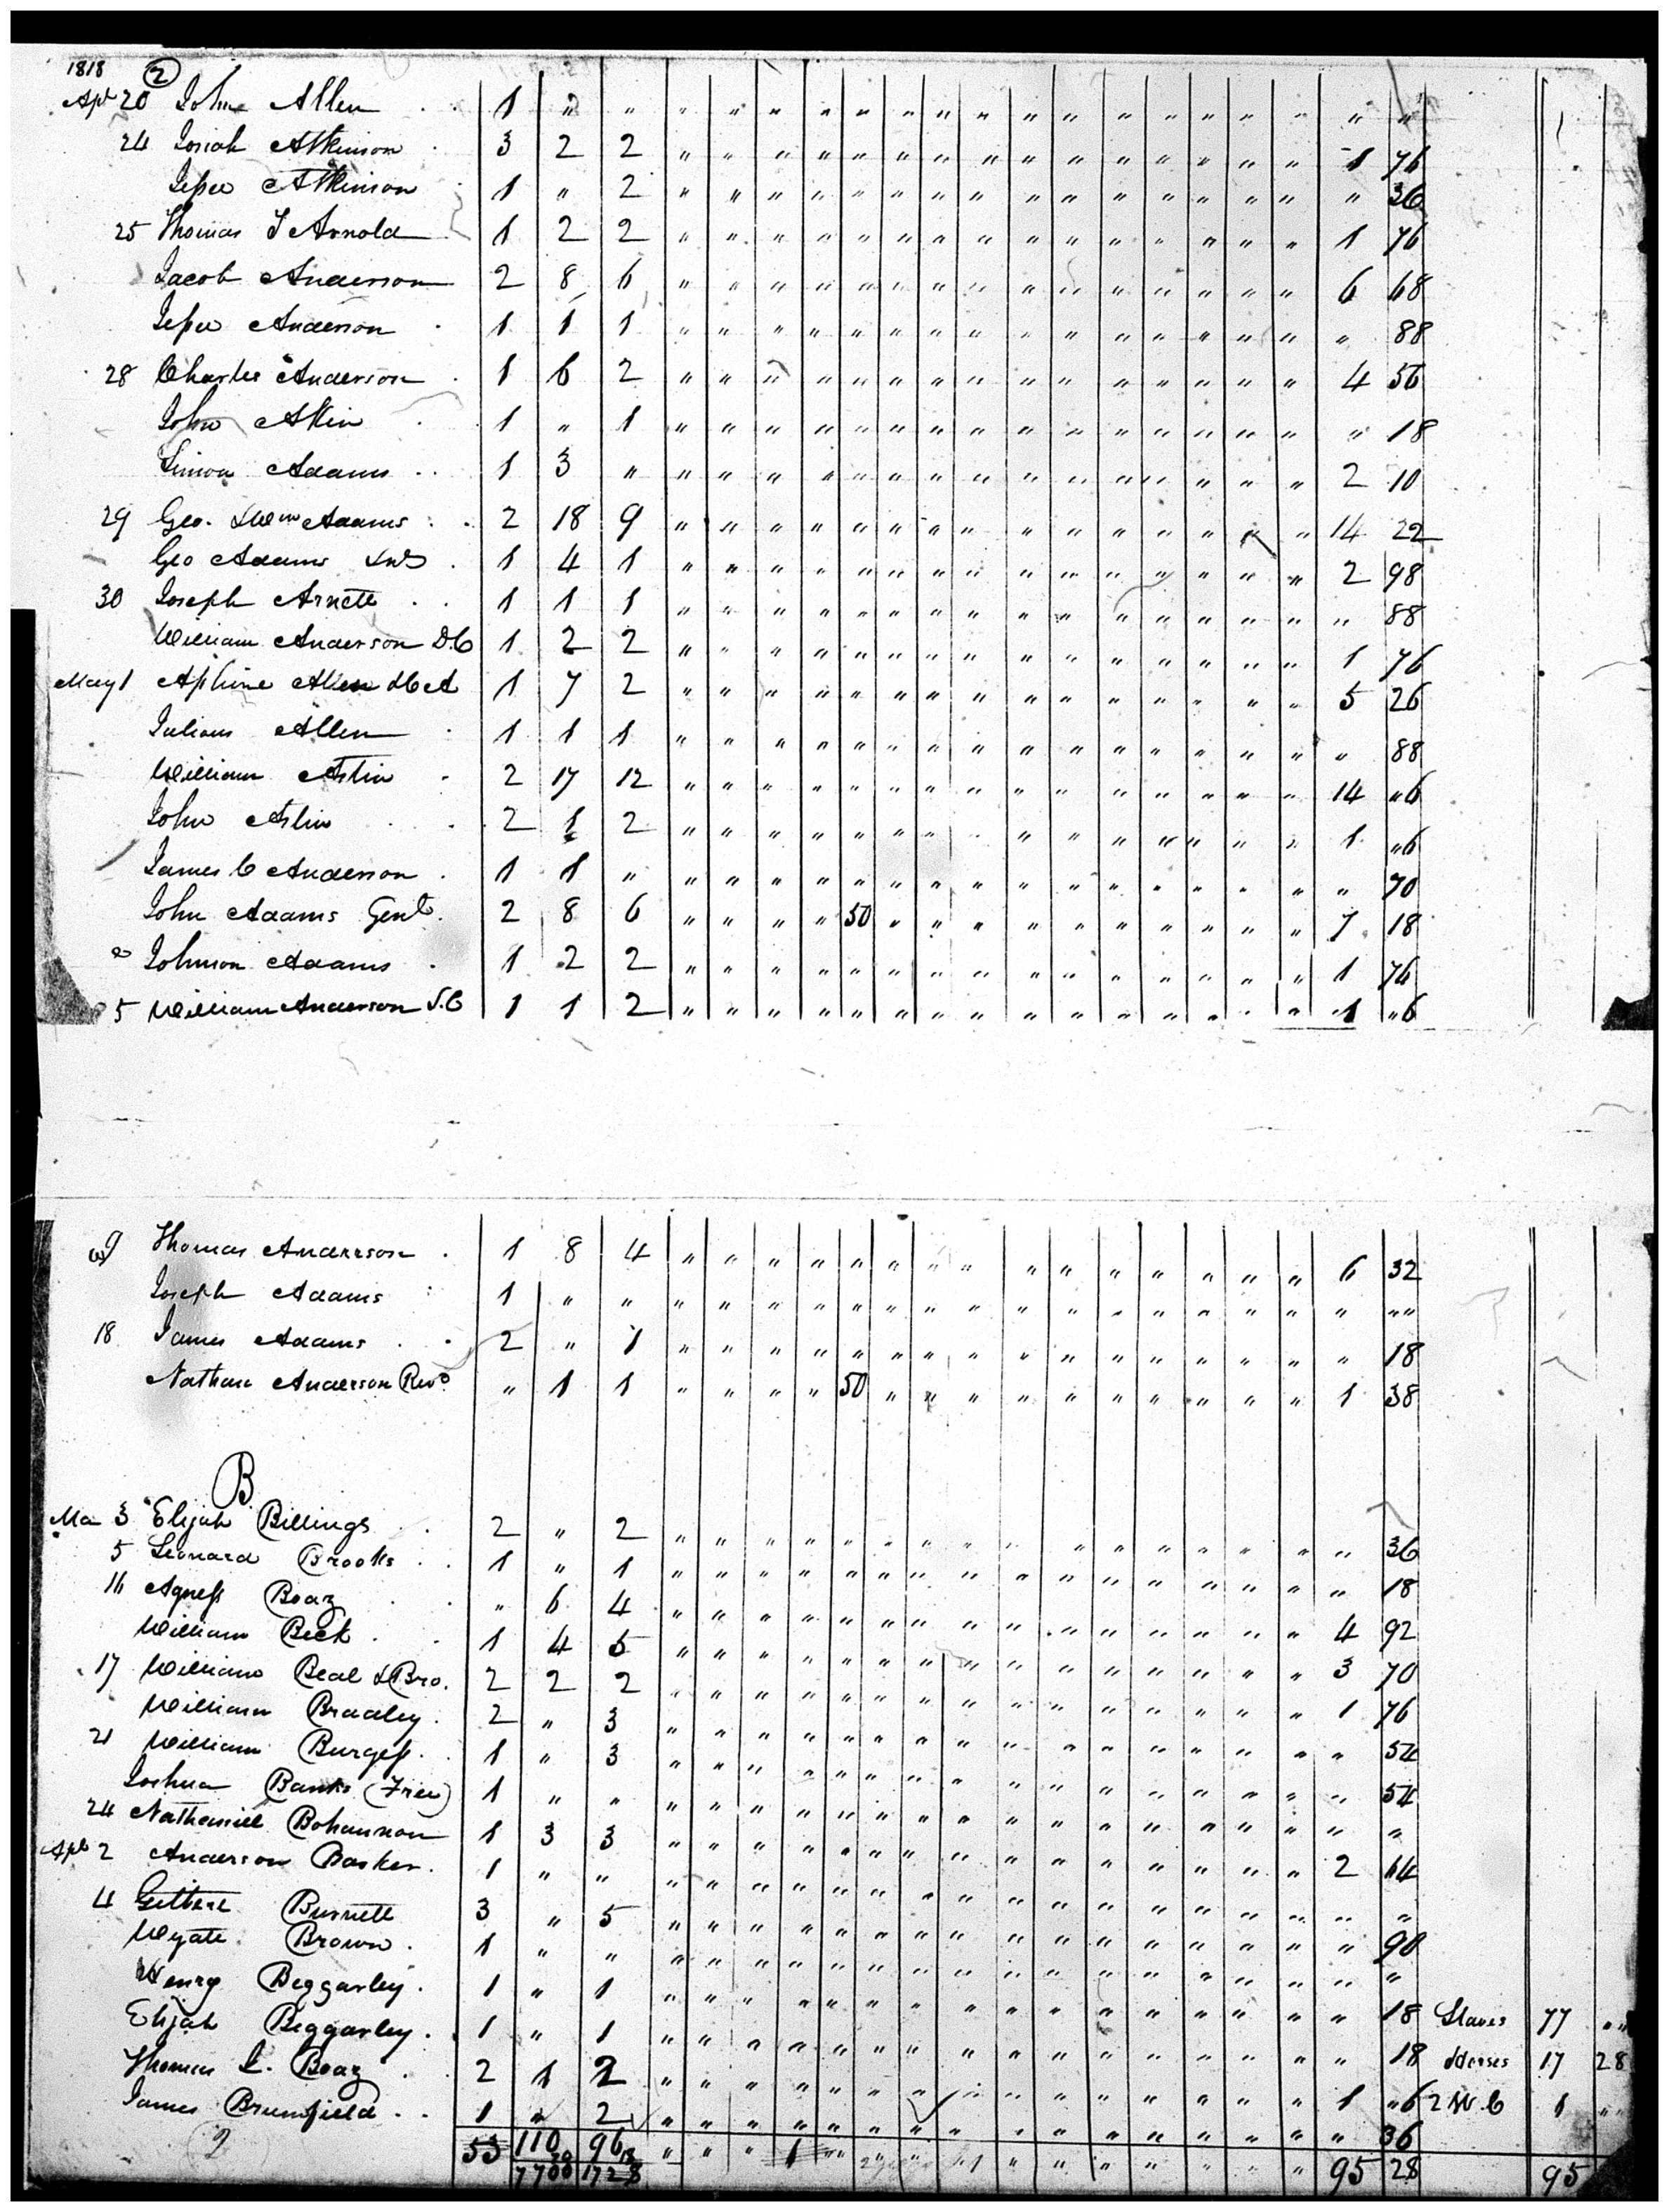 1818 2
Apl 20 John Allen 1 " " " " " " " " " " " " " " " " " " "
24 Josiah Atkinson 3 2 2 " " " " " " " " " " " " " " " 1 76
Jesse Atkinson 1 " 2 " " " " " " " " " " " " " " " " 36
25 Thomas J Arnold 1 2 2 " " " " " " " " " " " " " " " 1 76
Jacob Anderson 2 8 6 " " " " " " " " " " " " " " " 6 68
Jesse Anderson 1 1 1 " " " " " " " " " " " " " " " " 88
28 Charles Anderson 1 6 2 " " " " " " " " " " " " " " " 4 56
John Akin 1 " 1 " " " " " " " " " " " " " " " " 18
Simon Adams 1 3 " " " " " " " " " " " " " " " " 2 10
29 Geo. & Wm Adams 2 18 9 " " " " " " " " " " " " " " " 14 22
Geo Adams 1 4 1 " " " " " " " " " " " " " " " 2 98
30 Joseph Arnett 1 1 1 " " " " " " " " " " " " " " " " 88
William Anderson D.C 1 2 2 " " " " " " " " " " " " " " " 1 76
May 1 Allen 1 7 2 " " " " " " " " " " " " " " " 5 26
Julious Allen 1 1 1 " " " " " " " " " " " " " " " " 88
William Astin 2 17 12 " " " " " " " " " " " " " " " 14 "6
John Astin 2 1 2 " " " " " " " " " " " " " " " 1 "6
James C Anderson 1 1 " " " " " " " " " " " " " " " " " 70
John Adams Gent. 2 8 6 " " " " 50 " " " " " " " " " " 7 18
Johnson Adams 1 2 2 " " " " " " " " " " " " " " " 1 76
5 William Anderson S.C 1 1 2 " " " " " " " " " " " " " " " 1 "6
9 Thomas Anderson 1 8 4 " " " " " " " " " " " " " " " 6 32
Joseph Adams 1 " " " " " " " " " " " " " " " " " " ""
18 James Adams 2 " 1 " " " " " " " " " " " " " " " " 18
Nathan Anderson Revd " 1 1 " " " " 50 " " " " " " " " " " 1 38
B
Ma 3 Elijah Billings 2 " 2 " " " " " " " " " " " " " " " " 36
5 Leonard Brooks 1 " 1 " " " " " " " " " " " " " " " " 18
16 Agness Boaz " 6 4 " " " " " " " " " " " " " " " 4 92
William Beck 1 4 5 " " " " " " " " " " " " " " " 3 70
17 William Beal & Bro. 2 2 2 " " " " " " " " " " " " " " " 1 76
William Bradley 2 " 3 " " " " " " " " " " " " " " " " 54
21 William Burgess 1 " 3 " " " " " " " " " " " " " " " " 54
Joshua Banks (Free) 1 " " " " " " " " " " " " " " " " " " "
24 Nathaniel Bohannon 1 3 3 " " " " " " " " " " " " " " " 2 64
Apl 2 Anderson Barker 1 " " " " " " " " " " " " " " " " " " "
4 Burnett 3 " 5 " " " " " " " " " " " " " " " " 90
Wyatt Brown 1 " " " " " " " " " " " " " " " " " " "
Henry Beggarley 1 " 1 " " " " " " " " " " " " " " " " 18 Slaves 77 ""
Elijah Beggarley 1 " 1 " " " " " " " " " " " " " " " " 18 Horses 17 28
Thomas Boaz 2 1 2 " " " " " " " " " " " " " " " 1 "6 2 W.C 1 ""
James Brumfield 1 " 2 " " " " " " " " " " " " " " " " 36
53 110 96 " " " 1 " " " " " " " " 95 28 95
70 18
7700 1728
2